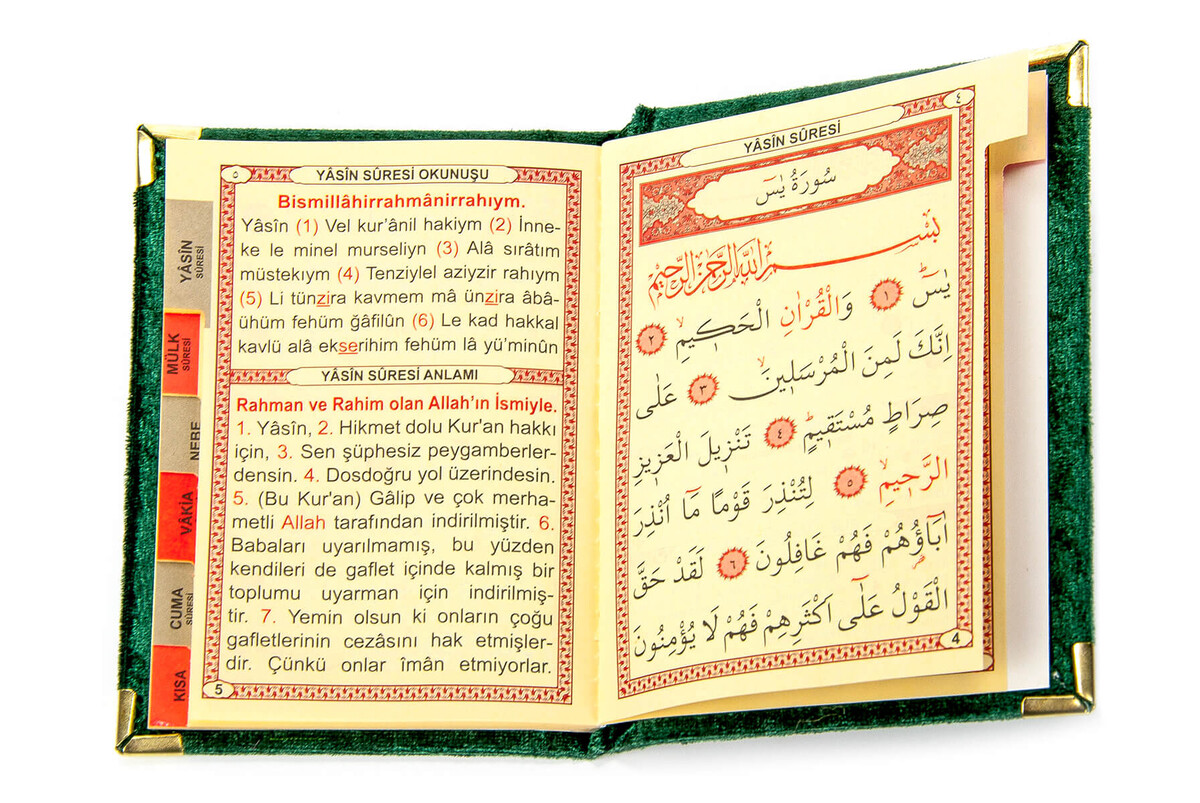 ٤
YÂSÎN SÛRESİ
سُورَةُ يٰسٓ
بِسْمِ اللّٰهِ الرَّحْمٰنِ الرَّحِيمِ
يٰسٓ ١ وَالْقُرْاٰنِ الْحَك۪يمِۙ ٢
اِنَّكَ لَمِنَ الْمُرْسَل۪ينَۙ ٣ عَلٰى
صِرَاطٍ مُسْتَق۪يمٍۜ ٤ تَنْز۪يلَ الْعَز۪يزِ
الرَّح۪يمِۙ ٥ لِتُنْذِرَ قَوْمًا مَٓا اُنْذِرَ
اٰبَٓاؤُ۬هُمْ فَهُمْ غَافِلُونَ ٦ لَقَدْ حَقَّ
الْقَوْلُ عَلٰٓى اَكْثَرِهِمْ فَهُمْ لَا يُؤْمِنُونَ
4
٥
YÂSÎN SÛRESİ OKUNUŞU
Bismillâhirrahmânirrahıym.
Yâsîn (1) Vel kur’ânil hakiym (2) İnne-
ke le minel murseliyn (3) Alâ sırâtım
müstekıym (4) Tenziylel aziyzir rahıym
(5) Li tünzira kavmem mâ ünzira âbâ-
ühüm fehüm ğâfilûn (6) Le kad hakkal
kavlü alâ ekserihim fehüm lâ yü’minûn
YÂSÎN SÛRESİ ANLAMI
Rahman ve Rahim olan Allah’ın İsmiyle.
1. Yâsîn, 2. Hikmet dolu Kur'an hakkı
için, 3. Sen şüphesiz peygamberler-
densin. 4. Dosdoğru yol üzerindesin.
5. (Bu Kur'an) Gâlip ve çok merha-
metli Allah tarafından indirilmiştir. 6.
Babaları uyarılmamış, bu yüzden
kendileri de gaflet içinde kalmış bir
toplumu uyarman için indirilmiş-
tir. 7. Yemin olsun ki onların çoğu
gafletlerinin cezâsını hak etmişler-
dir. Çünkü onlar îmân etmiyorlar.
5
YÂSÎN
SÛRESİ
MÜLK
SÛRESİ
NEBE
VÂKIA
CUMA
SÛRESİ
KISA